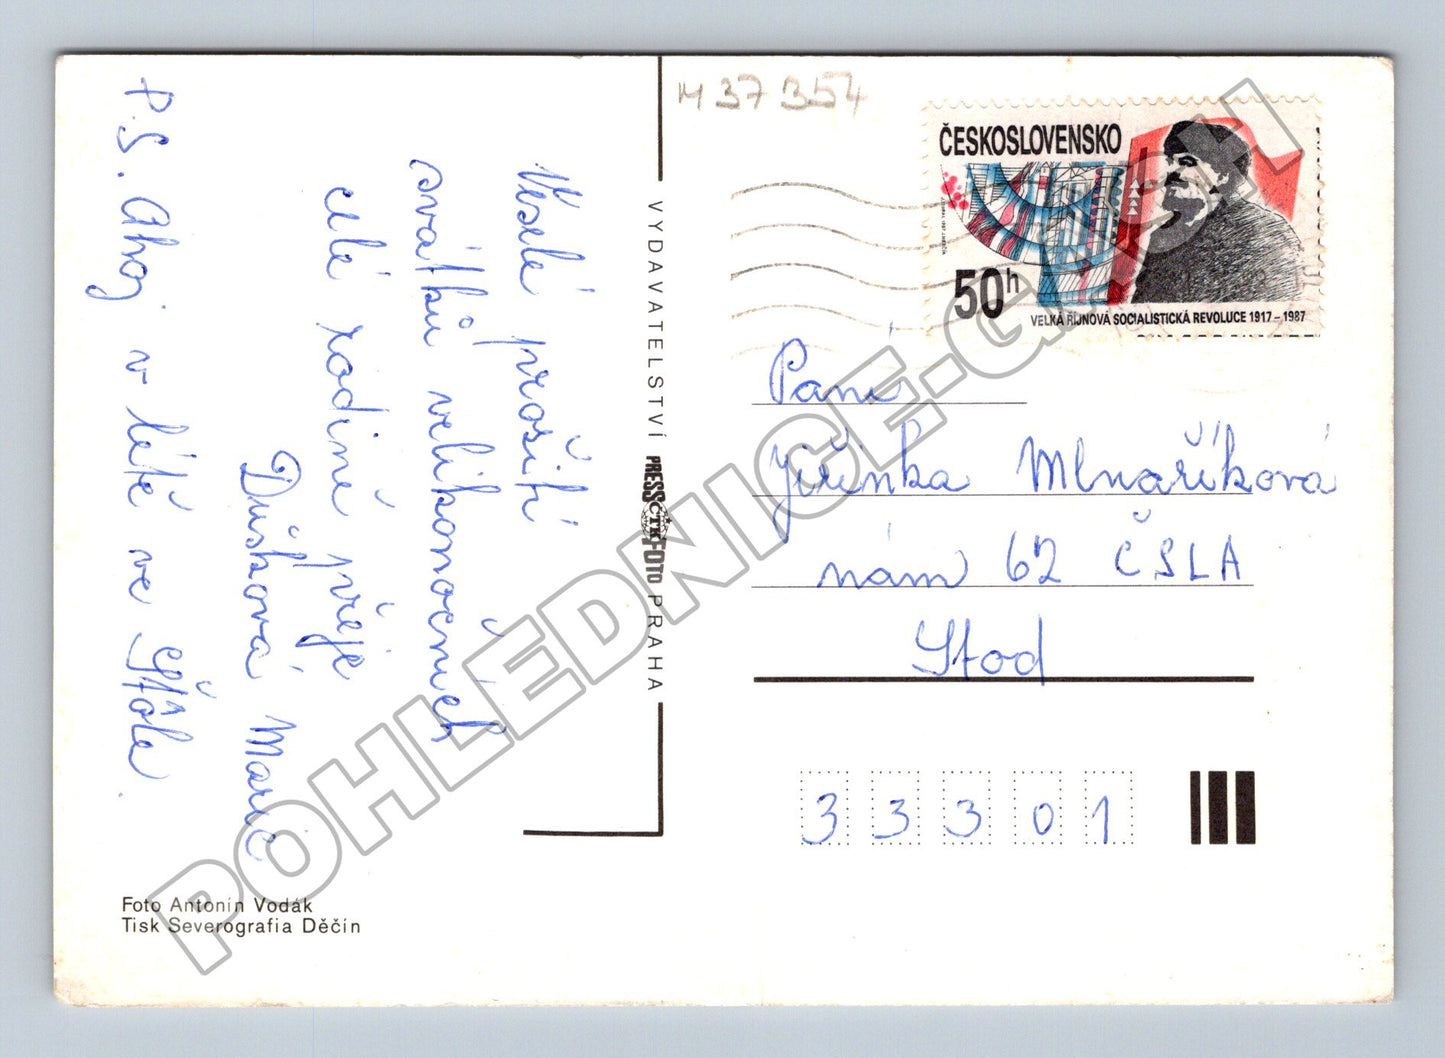 M 37 354
Veselé prožití
svátků velikonočních
celé rodině přeje
Dušková Marie
P.S. Ahoj v létě ve Štole.
VYDAVATELSTVÍ PRESSFOTO PRAHA
ČTK
ČESKOSLOVENSKO
50h
VELKÁ ŘÍJNOVÁ SOCIALISTICKÁ REVOLUCE 1917 – 1987
Paní
Jiřinka Mlnaříková
nám 62 ČSLA
Stod
33301
Foto Antonín Vodák
Tisk Severografia Děčín
POHLEDNICE-GARCH